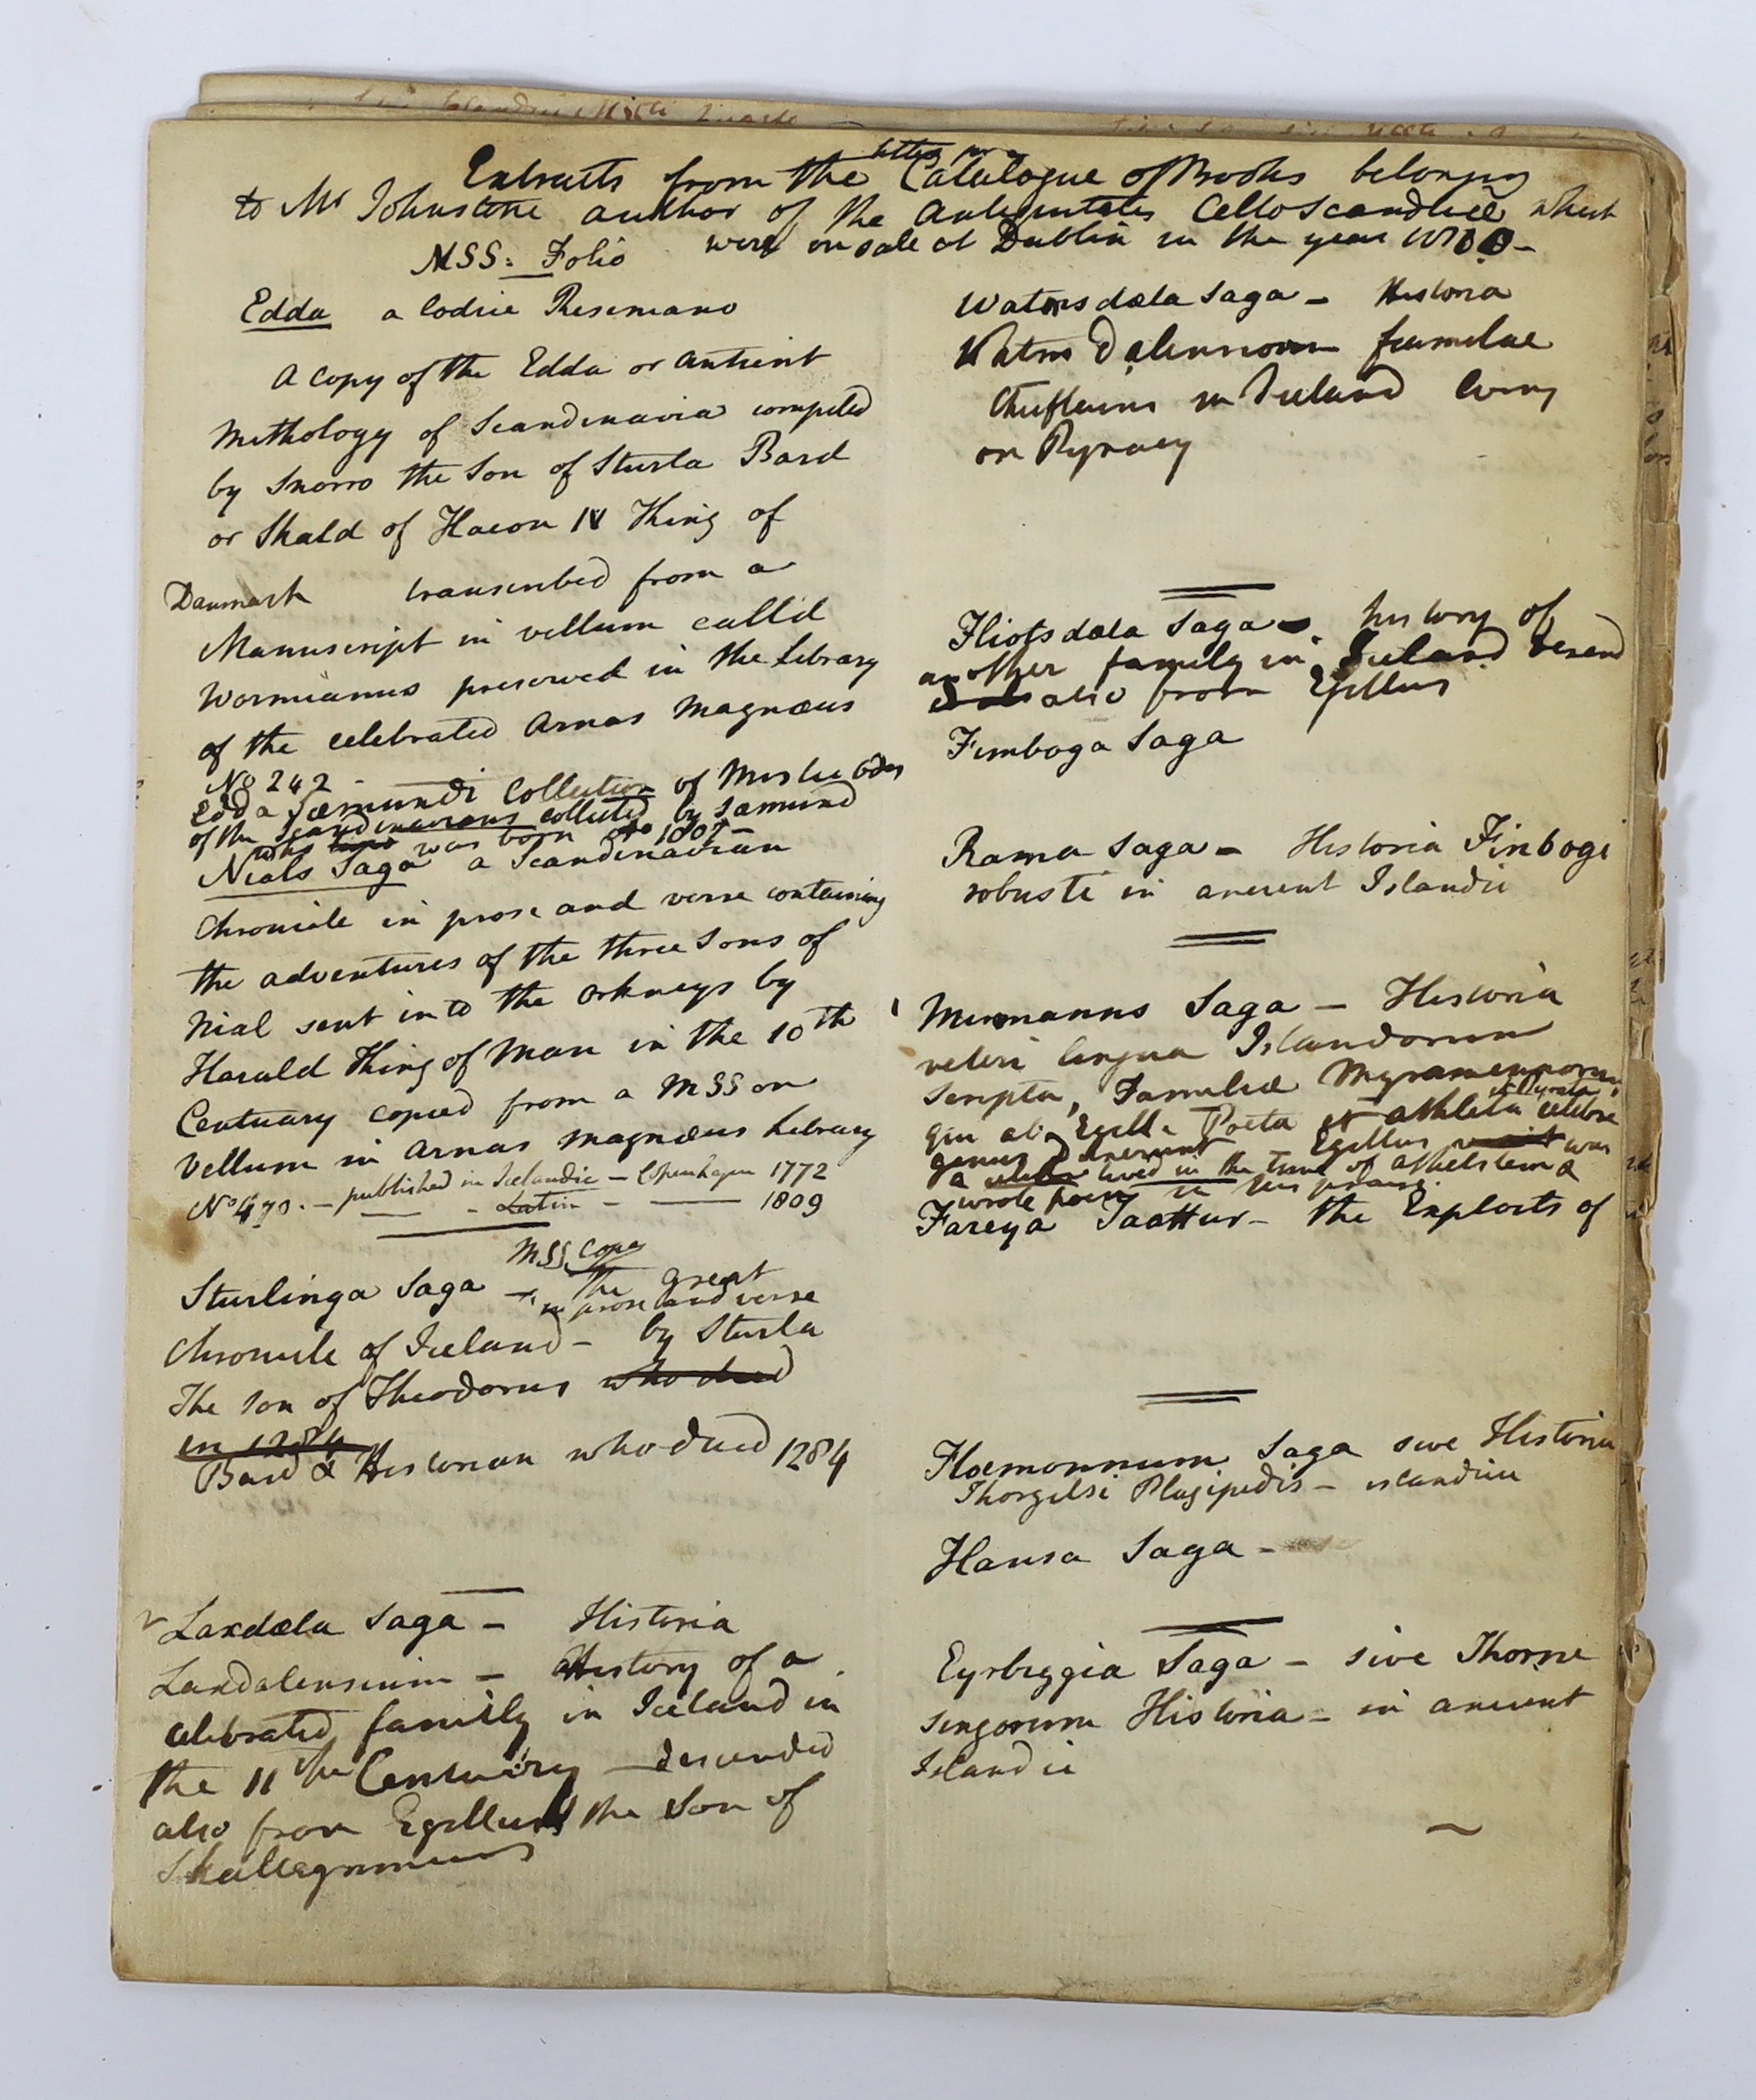 Extracts from the Catalogue of Books belonging
to Mr Johnstone author of the Antiquitates Celto Scandicæ which
were on sale at Dublin in the year
MSS: Folio
Edda a Codice Resemiano
A copy of the Edda or Antient
Mithology of Scandinavia compiled
by Snorro the Son of Sturla Bard
or Skald of Hacon IV King of
Danmark transcribed from a
Manuscript in vellum call'd
Wormianus preserved in the Library
of the celebrated Arnas Magnæus
No 242 -
Edda Sæmundi Collection of Odes
of the Scandinavians collected by Sæmund
who was born
Nials Saga a Scandinavian
Chronicle in prose and verse containing
the adventures of the three Sons of
Nial sent into the Orkneys by
Harald King of Man in the 10th
Centuary copied from a MSS on
Vellum in Arnas Magnæus Library
No 470. - published in Icelandic - Copenhagen 1772
— - Latin - — 1809
MSS. Copy
Sturlinga Saga - The great
in prose and verse
Chronicle of Iceland - by Sturla
The son of Theodorus who died
in 1284
Bard & Historian who died 1284
Laxdæla Saga - Historia
Laxdalensium - History of a
celebrated family in Iceland in
the 11th Century descended
also from Egillus the Son of
Skallegrimmus
Watnsdæla Saga - Historia
familiae
Chieftains in Iceland living
on
Fliotsdæla Saga - history of
another family in Iceland descend
also from Egillus
Finboga Saga
Rama Saga - Historia Finbogi
robusti in ancient Islandic
Mirmanns Saga - Historia
veteri lingua Islandorum
Scripta, Familiæ
qui ab Egill Poeta et athleta celebre
genus Egillus was
a lived in the time of Athelstein &
wrote poem in his praise.
Fareya Taattur - the Exploits of
Floemonnum Saga sive Historia
Thorgilsi Plagipedis - islandice
Hansa Saga -
Eyrbyggia Saga - sive Thorne
sengorum Historia - in ancient
Islandic